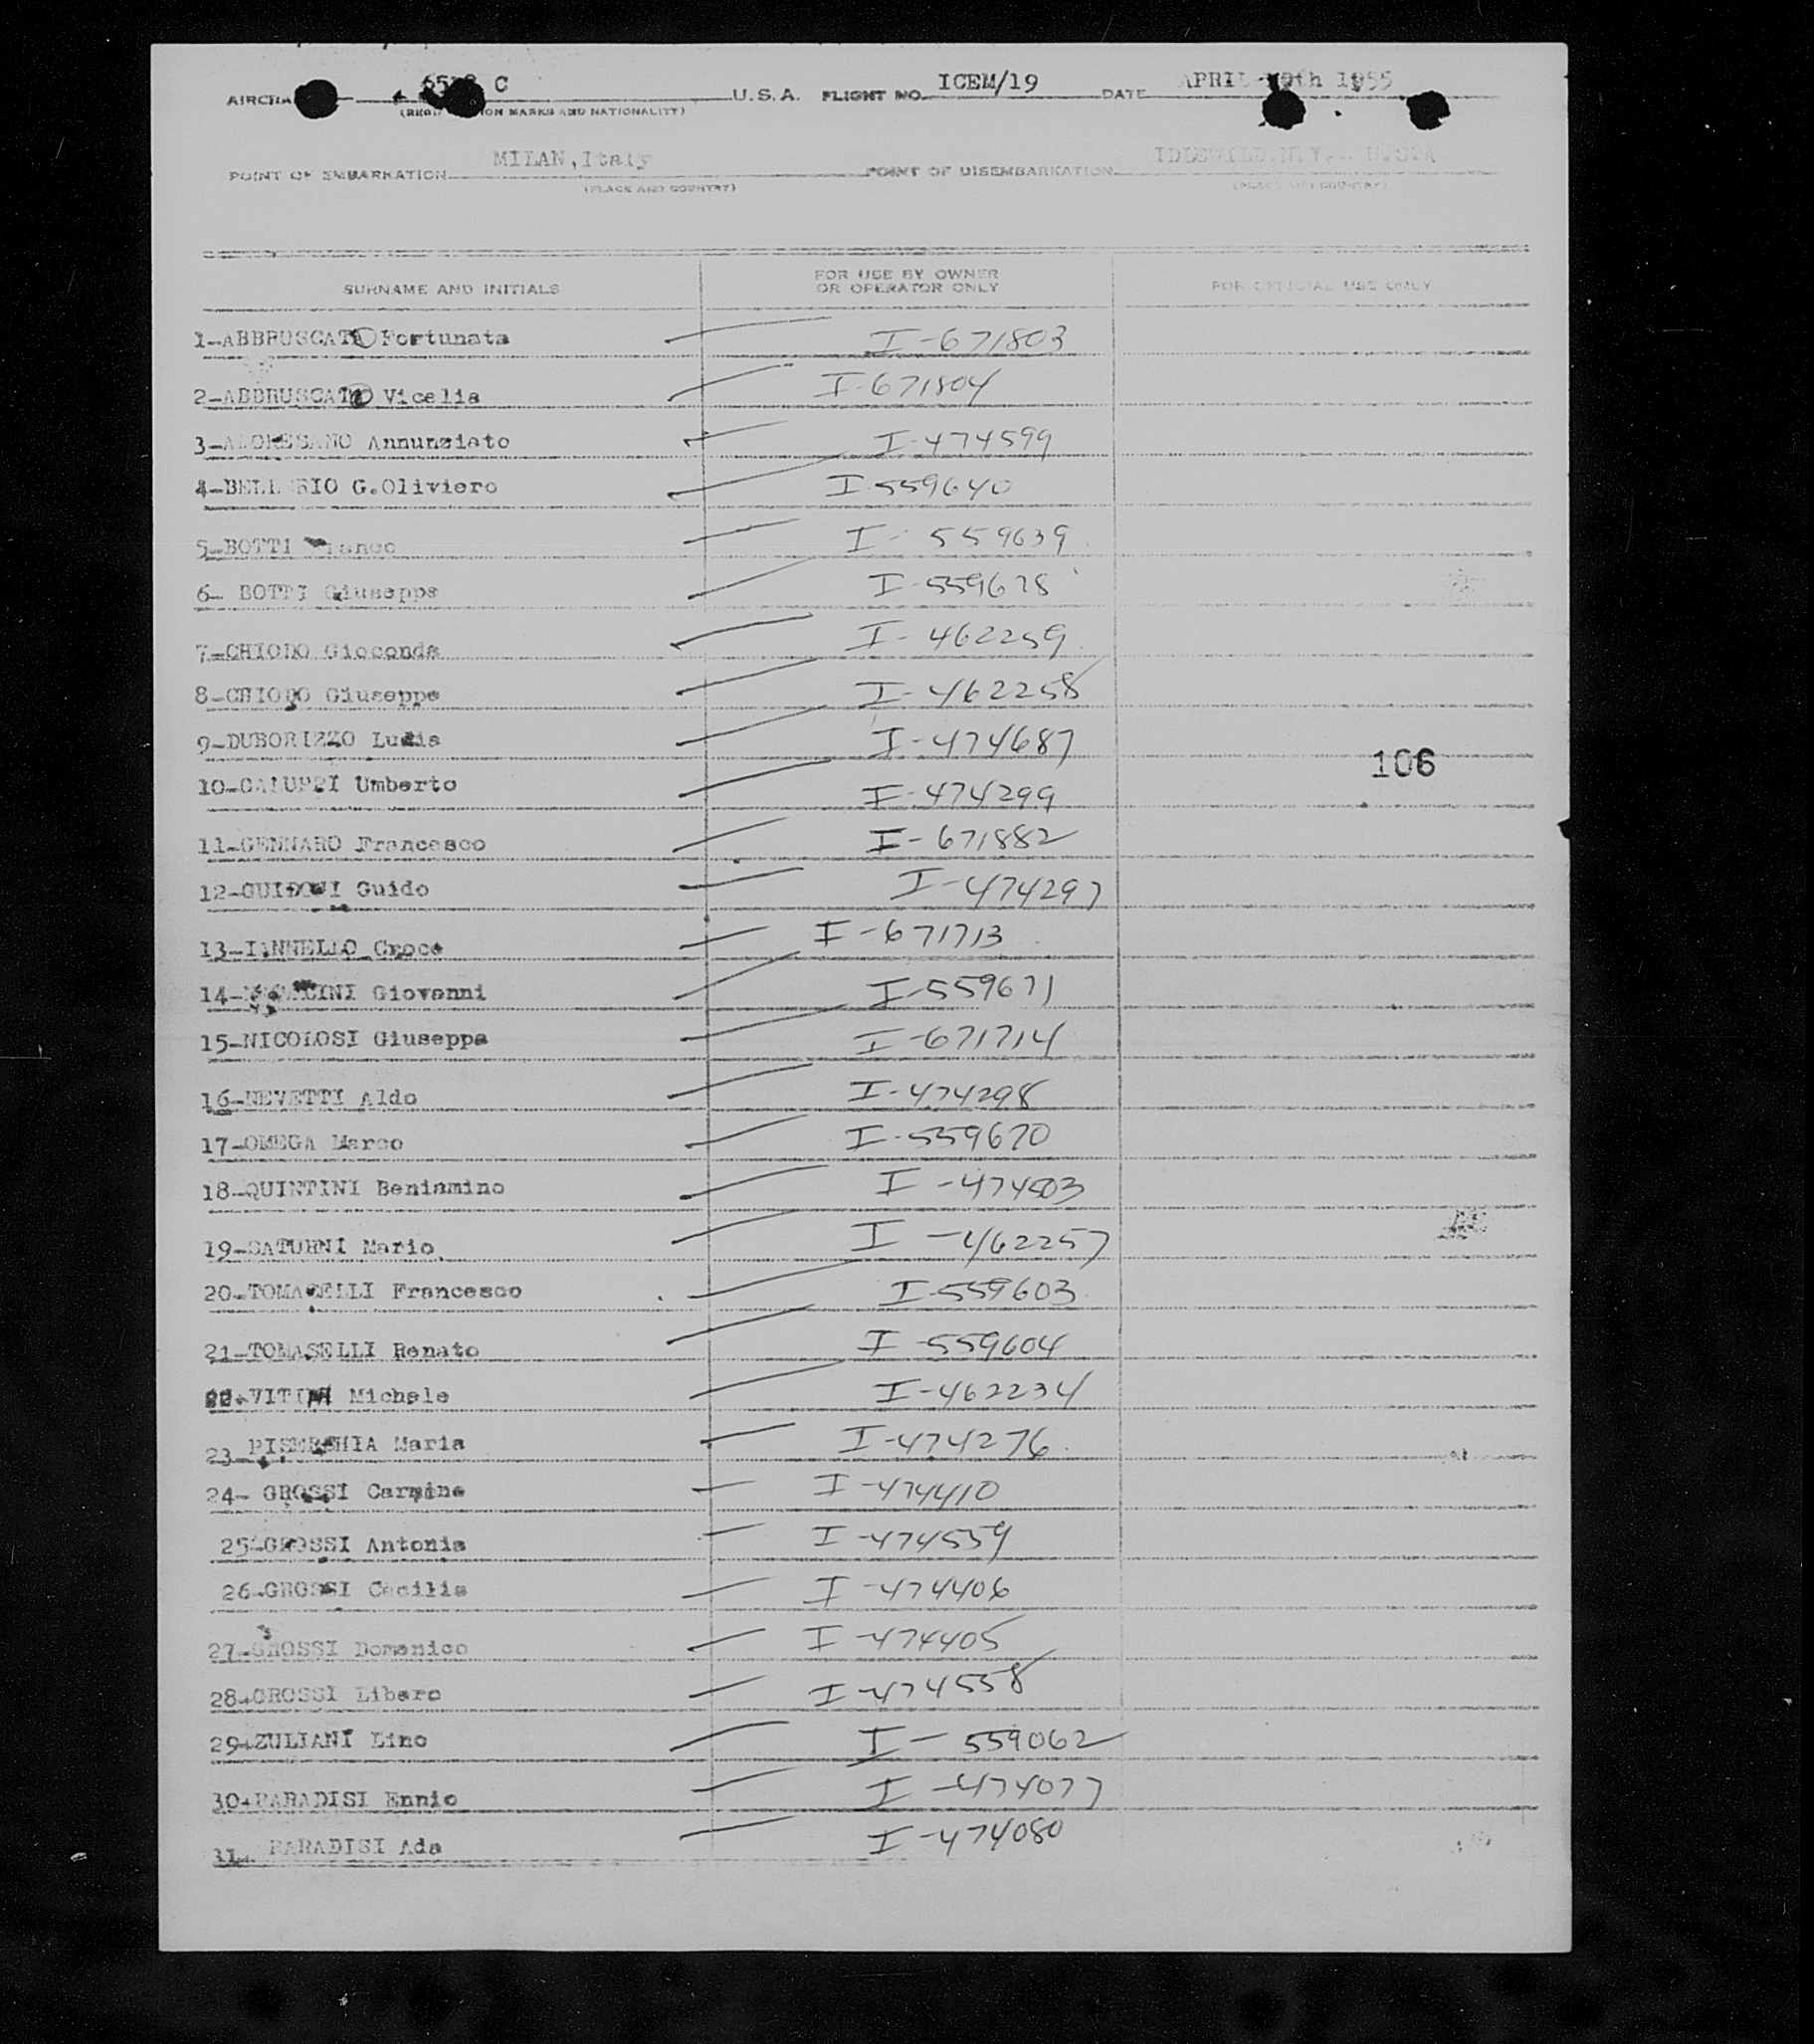 C U.S.A. FLIGHT NO. ICEM/19 DATE APRIL 1955
(REGISTRATION MARKS AND NATIONALITY)
POINT OF EMBARKATION MILAN, Italy POINT OF DISEMBARKATION IDLEWILD.N.Y. U.S.A
(PLACE AND COUNTRY) (PLACE AND COUNTRY)
SURNAME AND INITIALS FOR USE BY OWNER OR OPERATOR ONLY FOR OFFICIAL USE ONLY
1-ABBRUSCATO Fortunata I-671803
2-ABBRUSCATO Vicelia I-671804
3- Annunziato I-474599
4- G.Oliviero I-559640
5-BOTTI Franco I-559639
6- BOTTI Giuseppe I-559678
7-CHIODO Gioconda I-462259
8-CHIODO Giuseppe I-462258
9-DUBORIZZO Ludia I-474687
10-GALUPPI Umberto I-474299
106
11-GENNARO Francesco I-671882
12-GUIDONI Guido I-474297
13-IANNELLO Croce I-671713
14- Giovanni I-559671
15-NICOLOSI Giuseppa I-671714
16-NEVETTI Aldo I-474298
17-OMEGA Marco I-559670
18-QUINTINI Beniamino I-474503
19-SATURNI Mario. I-462257
20-TOMASELLI Francesco I-559603
21-TOMASELLI Renato I-559604
22- Michele I-462234
23 PISERCHIA Maria I-474276
24- GROSSI Carmine I-474410
25-GROSSI Antonia I-474559
26-GROSSI Cecilia I-474406
27-GROSSI Domenico I-474405
28-GROSSI Libero I-474558
29-ZULIANI Lino I-559062
30-PARADISI Ennio I-474077
31- PARADISI Ada I-474080